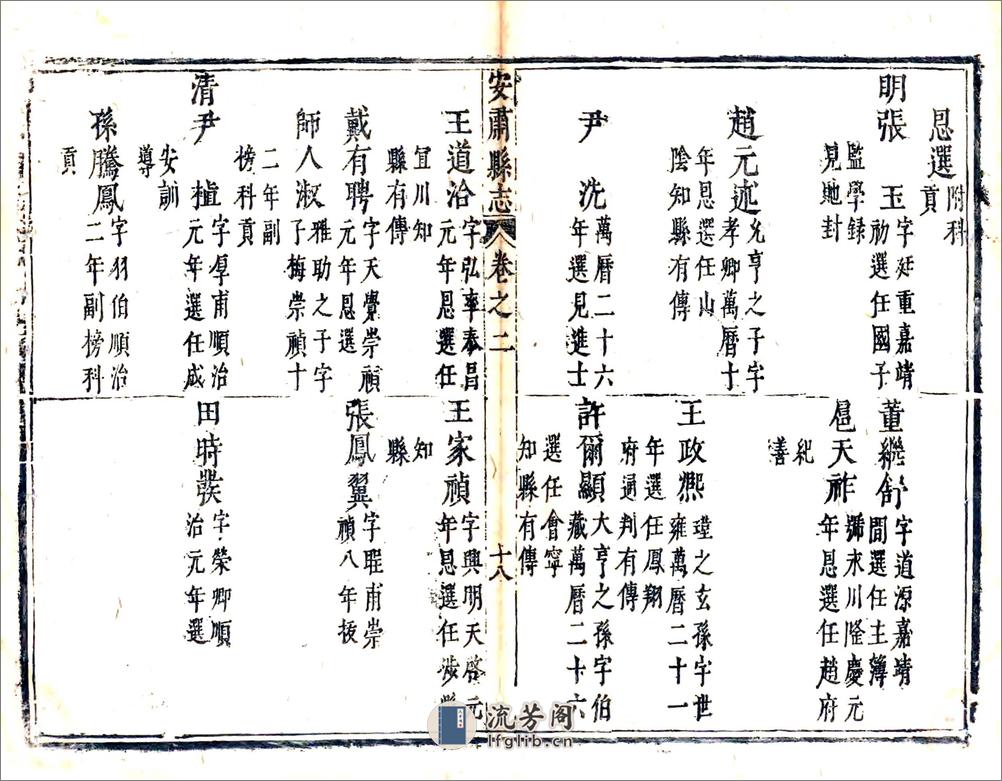 恩選附科
貢
明張 玉字延重嘉靖
初選任國子
監學錄
見貤封
董繼舒字道源嘉靖
間選任主簿
扈天祚號永川隆慶元
年恩選任趙府
紀
善
趙元述允亨之子字
孝卿萬曆十
年恩選任山
陰知縣有傳
王政熙瑝之玄孫字世
雍萬曆二十一
年選任鳳翔
府通判有傳
尹 洗萬曆二十六
年選見進士
許爾顯大亨之孫字伯
藏萬曆二十六
選任會寧
知縣有傳
安肅縣志 卷之二 十八
王道洽字弘宇泰昌
元年恩選任
宜川知
縣有傳
王家禎字興明天啓元
年恩選任涉縣
知
縣
戴有聘字天覺崇禎
元年恩選
張鳳翼字甫崇
禎八年拔
師人淑雅助之子字
子梅崇禎十
二年副
榜科貢
清尹 植字厚甫順治
元年選任咸
安訓
導
田時發字榮卿順
治元年選
孫騰鳳字羽伯順治
二年副榜科
貢
流芳阁
lfglib.cn